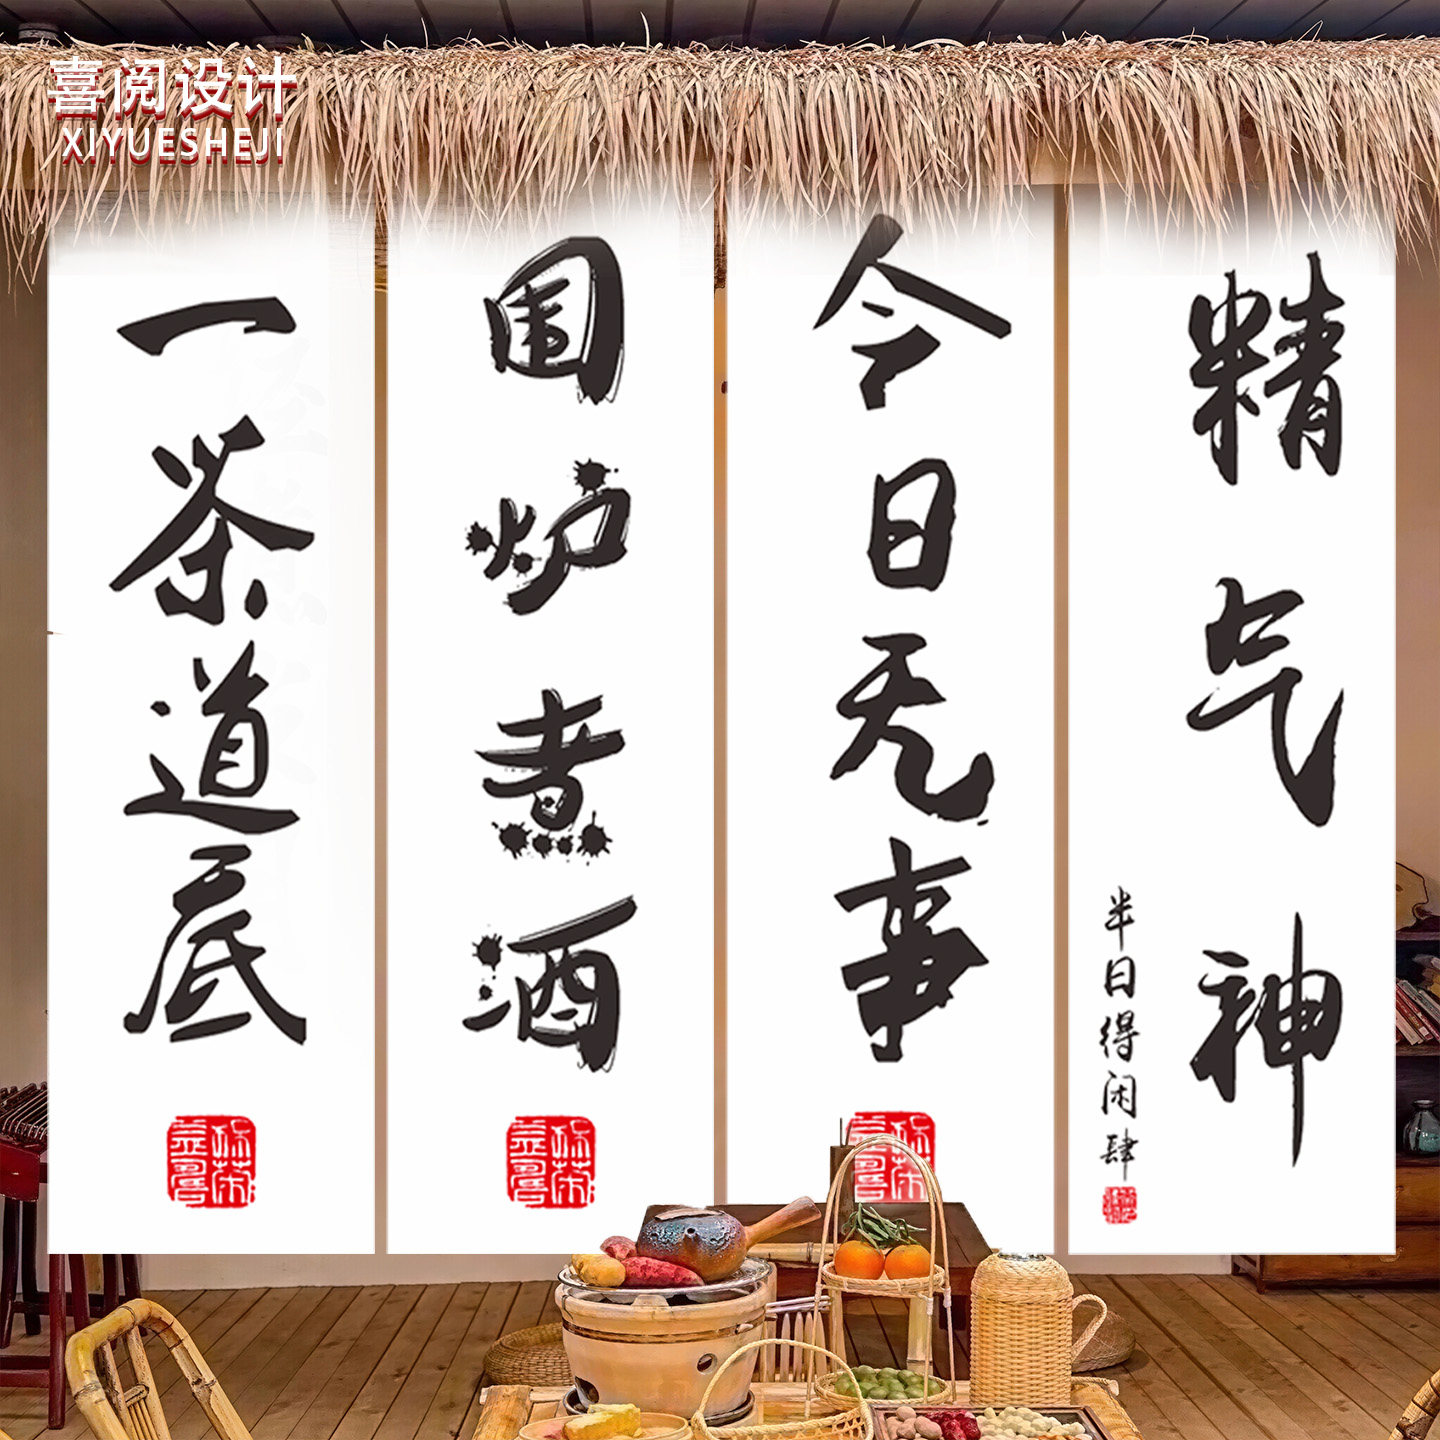 喜阅设计
XIYUESHEJI
一茶道底
围炉煮酒
今日无事
精气神
半日得闲肆